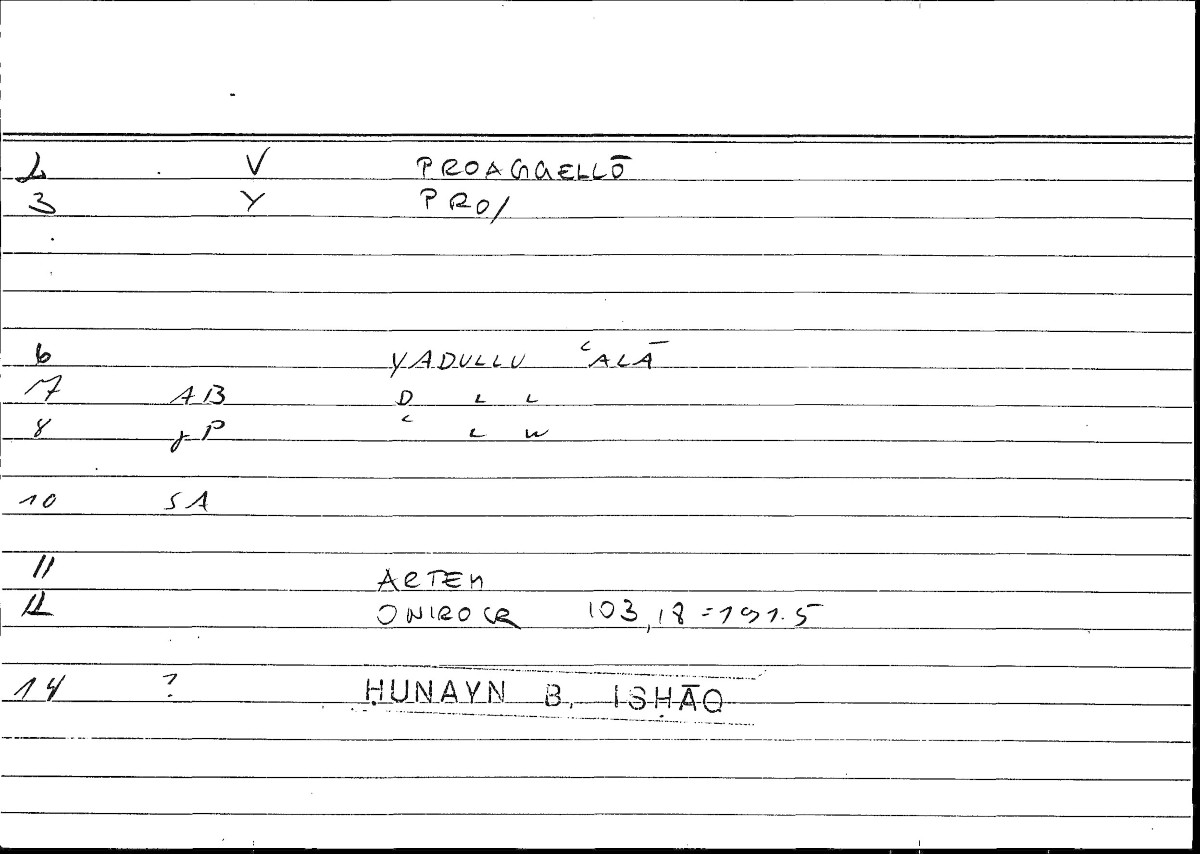 2 V PROAGGELLŌ
3 Y PRO/
6 YADULLU ʿALĀ
7 AB D L L
8 gP ʿ L W
10 SA
11 ARTEM
12 ONIROCR 103,18 = 191.5
14 ? ḤUNAYN B. ISḤĀQ